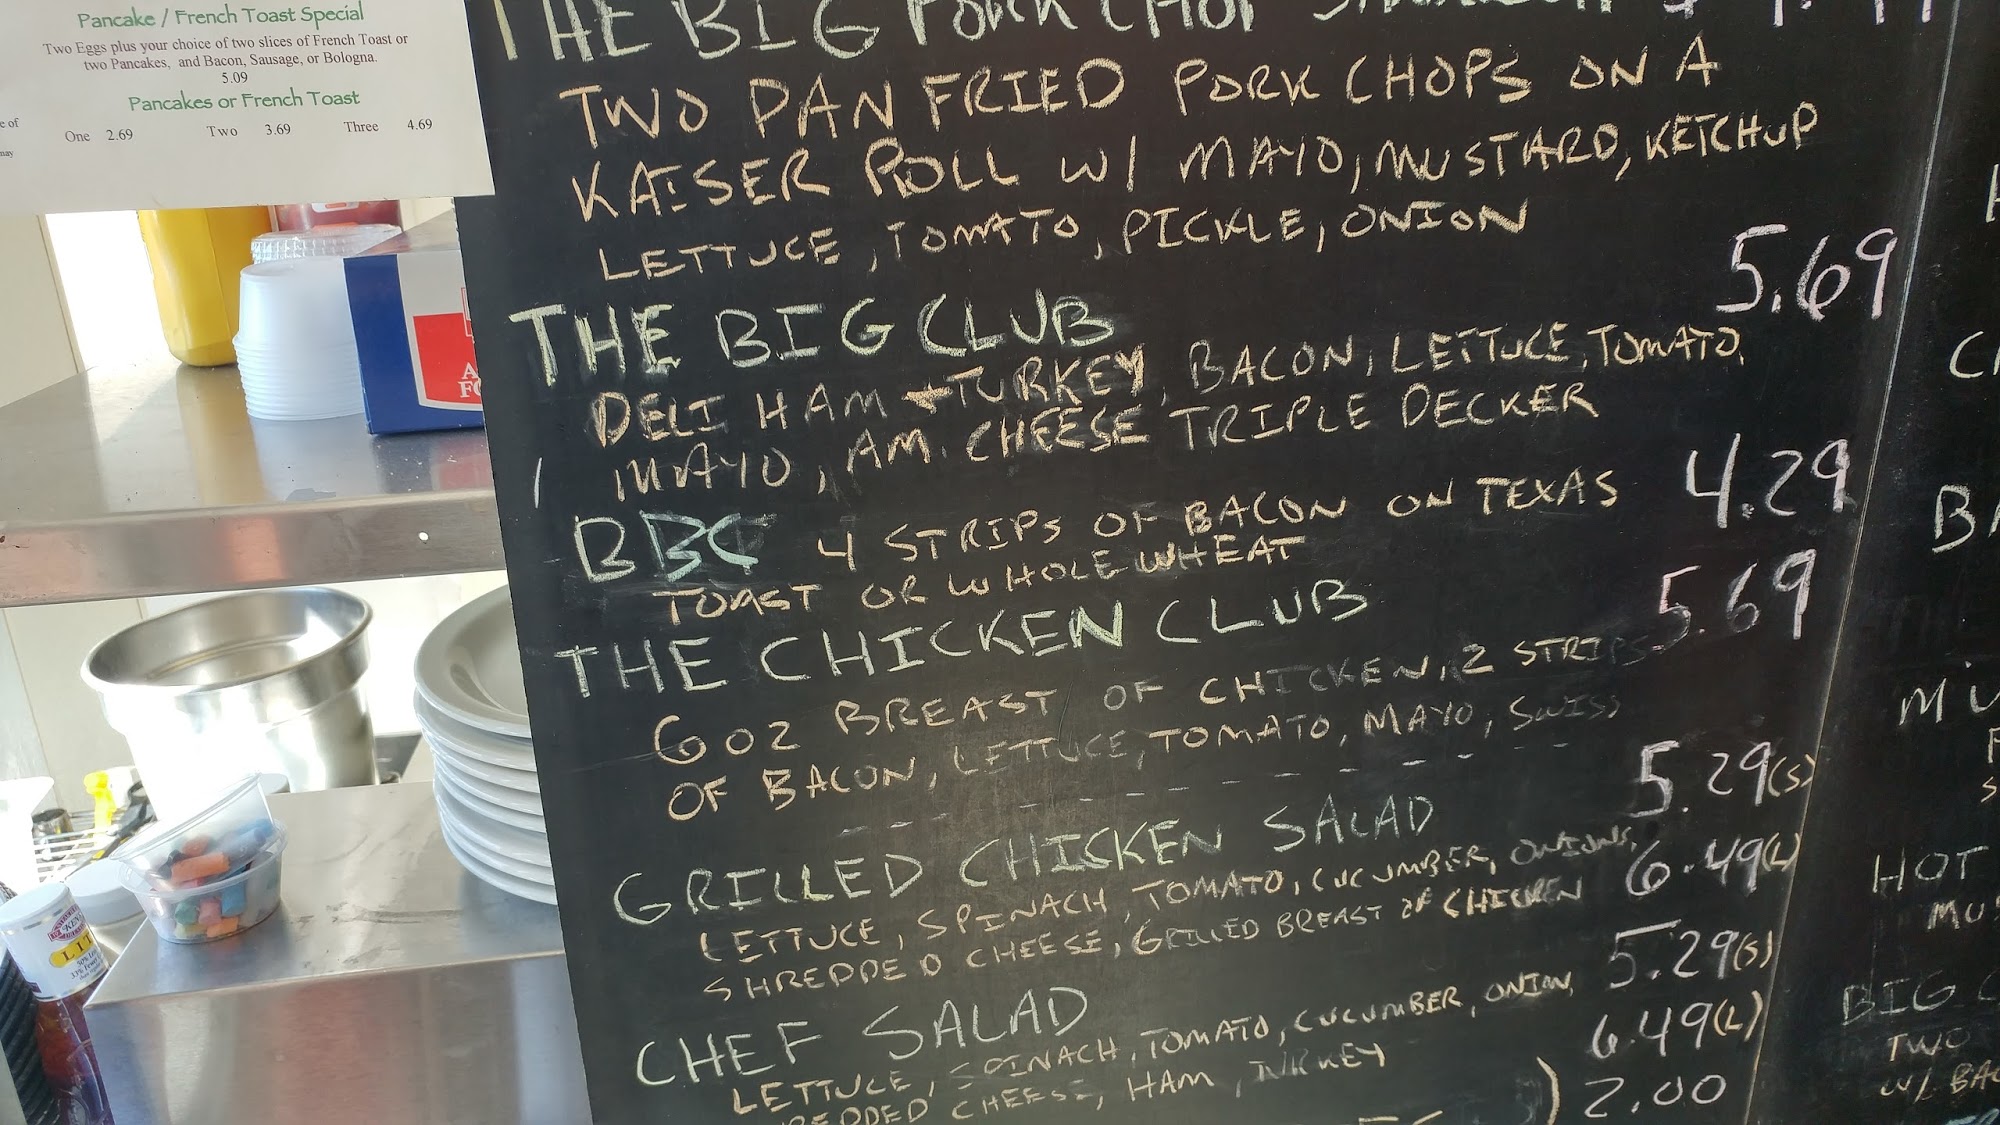 Pancake / French Toast Special
Two Eggs plus your choice of two slices of French Toast or
two Pancakes, and Bacon, Sausage, or Bologna.
5.09
Pancakes or French Toast
e of
One 2.69 Two 3.69 Three 4.69
may
THE BIG PORK CHOP
TWO PAN FRIED PORK CHOPS ON A
KAISER ROLL W/ MAYO, MUSTARD, KETCHUP
LETTUCE, TOMATO, PICKLE, ONION
THE BIG CLUB 5.69
DELI HAM + TURKEY, BACON, LETTUCE, TOMATO,
MAYO, AM. CHEESE TRIPLE DECKER
BBC 4 STRIPS OF BACON ON TEXAS 4.29
TOAST OR WHOLE WHEAT
THE CHICKEN CLUB 5.69
6 OZ BREAST OF CHICKEN, 2 STRIPS
OF BACON, LETTUCE, TOMATO, MAYO, SWISS
GRILLED CHICKEN SALAD 5.29(S)
LETTUCE, SPINACH, TOMATO, CUCUMBER, ONIONS, 6.49(L)
SHREDDED CHEESE, GRILLED BREAST OF CHICKEN
CHEF SALAD 5.29(S)
LETTUCE, SPINACH, TOMATO, CUCUMBER, ONION, 6.49(L)
REDDED CHEESE, HAM, TURKEY
2.00
HOT
BIG
TWO
W/ BAC
LIT